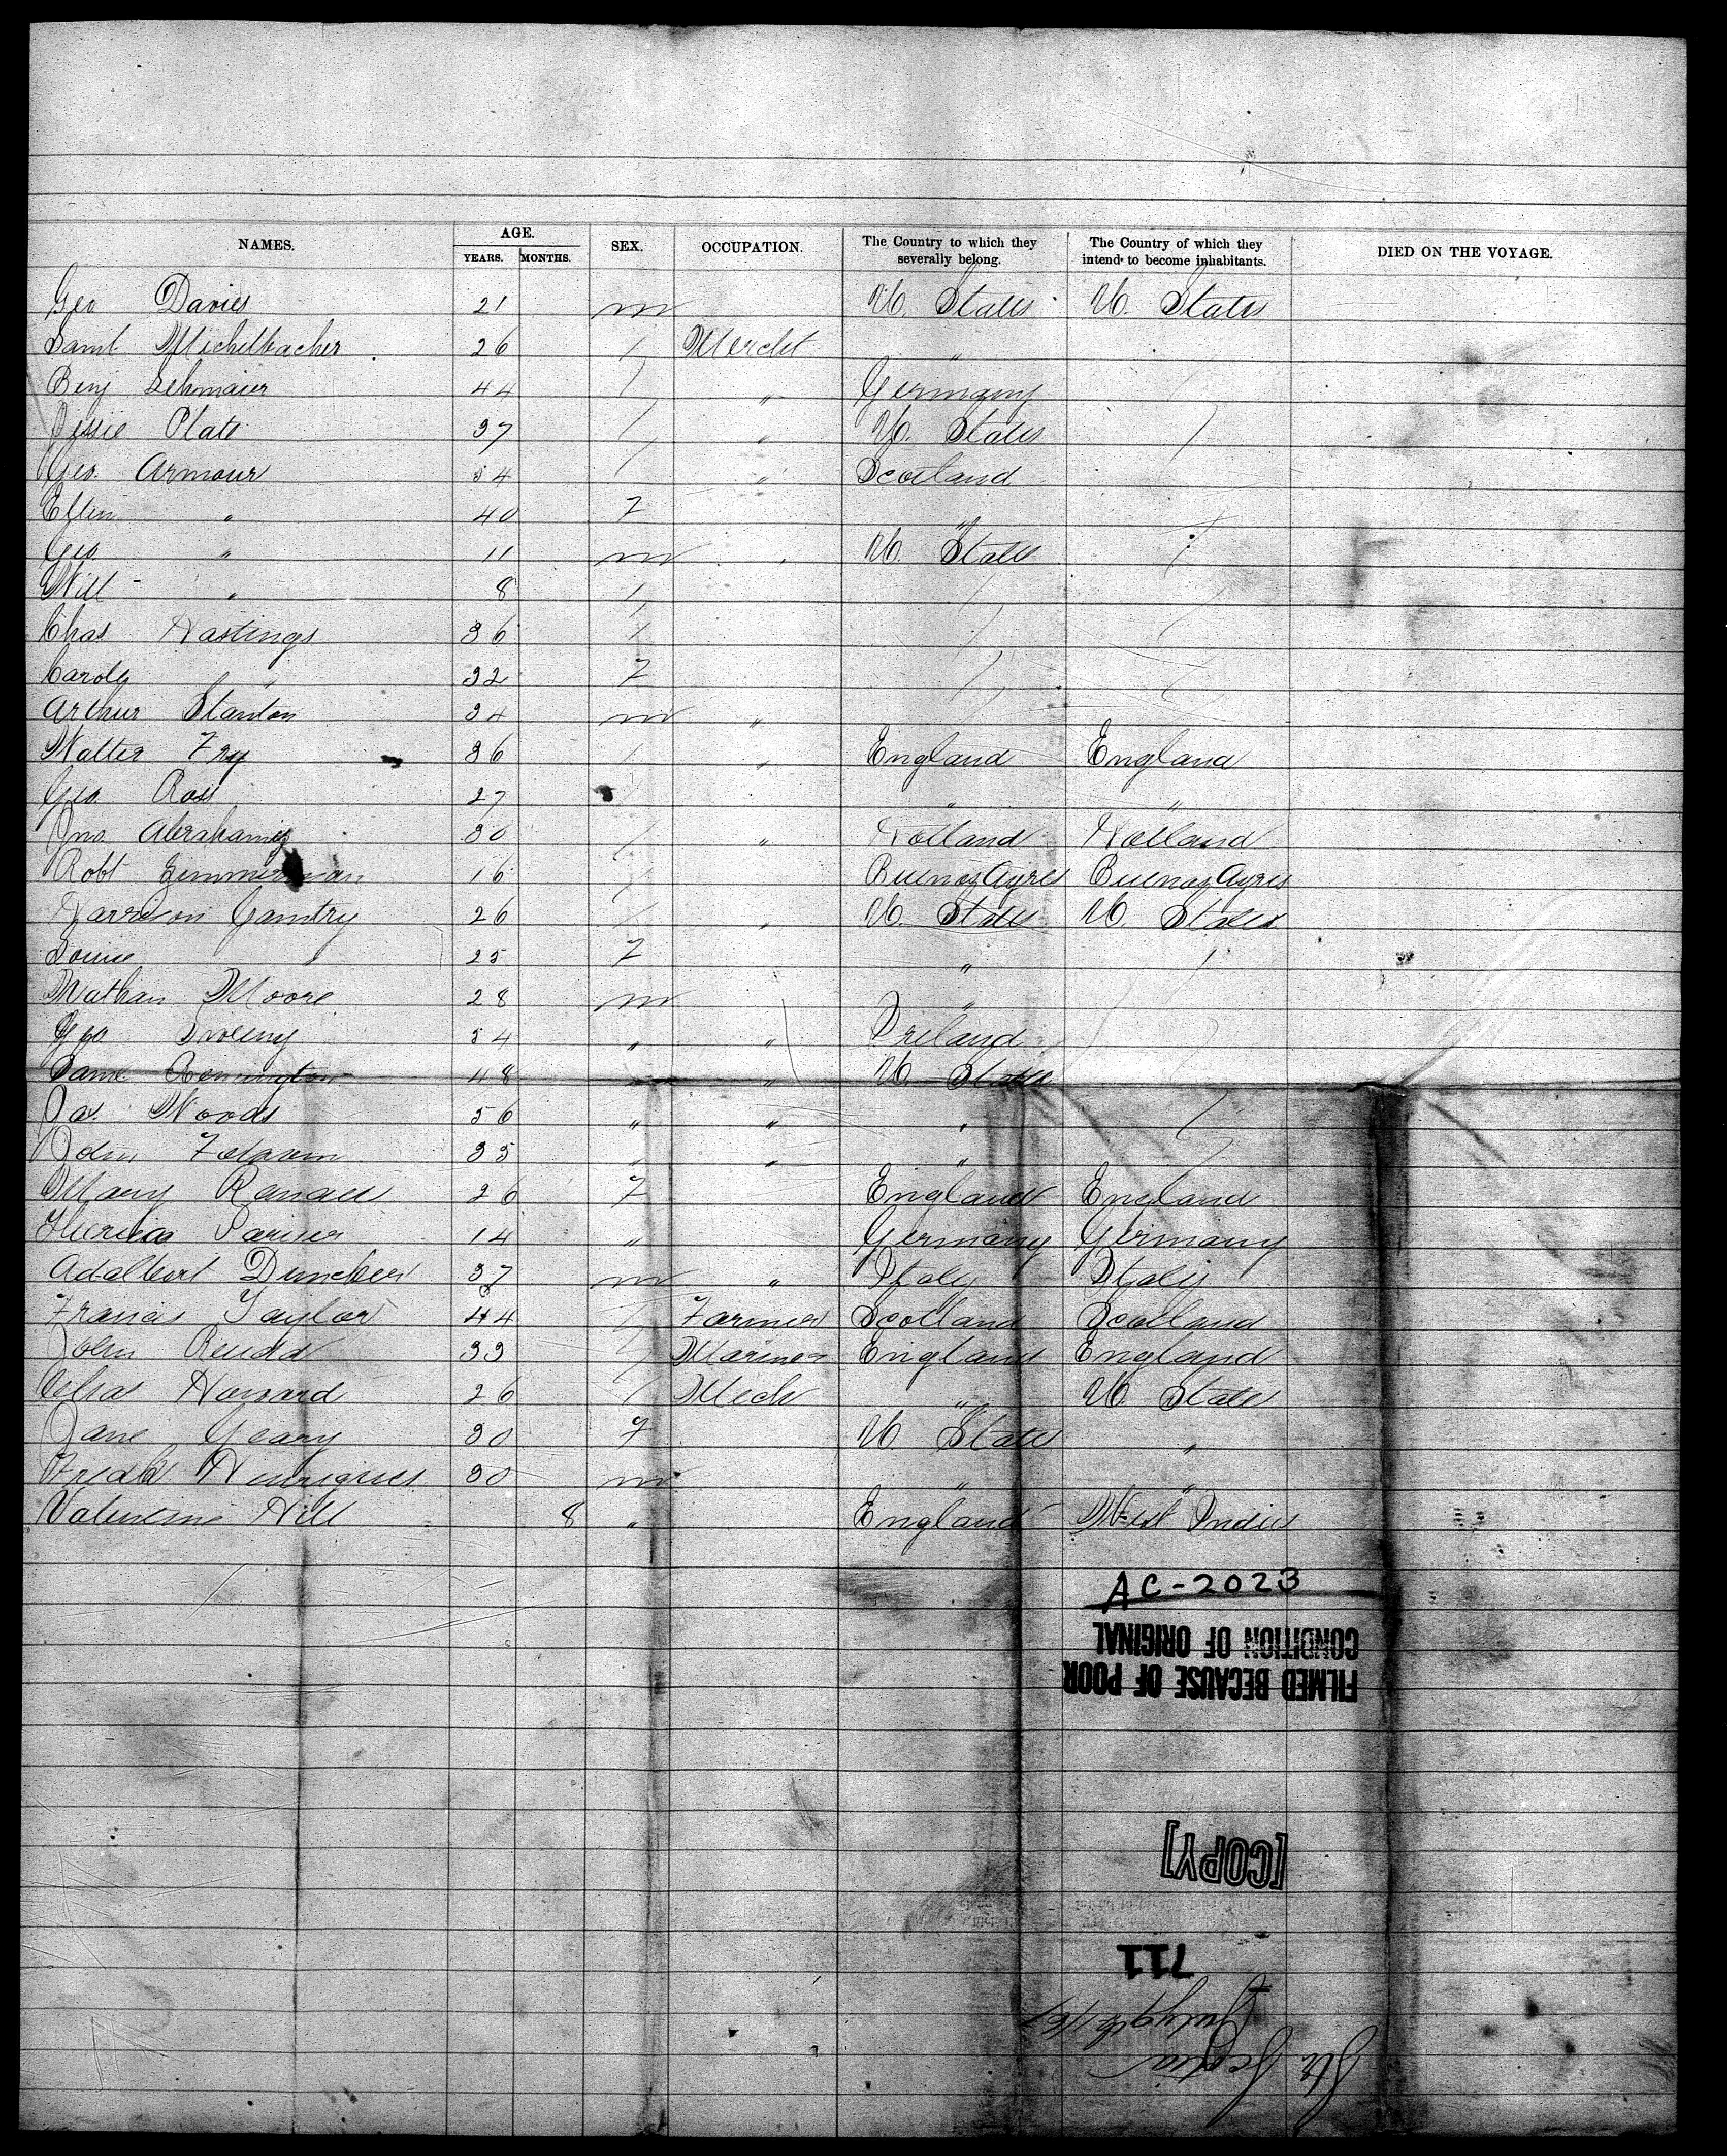 NAMES. AGE. YEARS. MONTHS. SEX. OCCUPATION. The Country to which they severally belong. The Country of which they intend to become inhabitants. DIED ON THE VOYAGE.
Geo Davies 21 m U. States U. States
Saml Michelbacher 26 / Mercht "
Benj Lehmaier 44 / " Germany /
Jessie Platt 37 / " U. States /
Geo. Armour 54 / " Scotland
Ellen " 40 F "
Geo " 11 m U. States /
Will " 8 / / /
Chas Hastings 36 / / /
Caroly " 32 F / /
Arthur Stanton 34 m " /
Walter Fry 36 / " England England
Geo Ross 27 / " "
Jno. Abrahamiz 30 / " Holland Holland
Robt Zimmerman 16 / Buenoz Ayres Buenoz Ayres
Harrison Gamtry 26 / " U. States U. States
Louise 25 F " /
Nathan Moore 28 m " /
Geo Sweeny 54 " " Ireland /
Saml Remington 48 " " U. States
Jas. Woods 56 " " " /
John Folsom 35 " " " /
Mary 26 F England England
14 " Germany Germany
Adalbert Duncker 37 m " Italy Italy
Francis Taylor 44 / Farmer Scotland Scotland
John 33 / Mariner England England
Chas Howard 26 / Mech " U. States
Jane Geary 30 F U States "
Fredk Henriques 30 m " "
Valentine Hill 8 " England West Indies
AC-2023
FILMED BECAUSE OF POOR
CONDITION OF ORIGINAL
[COPY]
711
Str Scotia
July